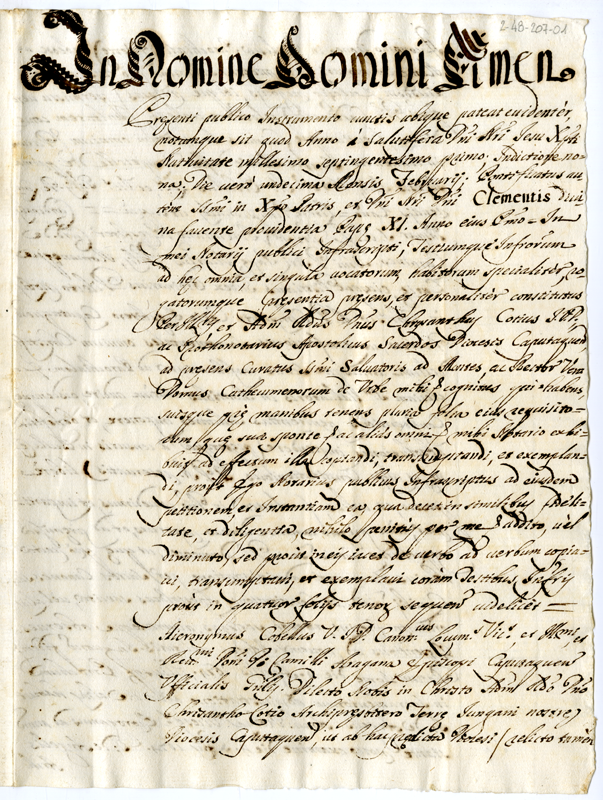 2-48-207-01
In Nomine Domini Amen
Presenti publico Instrumento cunctis ubique pateat evidentèr,
notumque sit quod Anno à Salutifera Dni Nri Jesu Xpti
Nativitate millesimo septingentesimo primo Indictione no=
na, Die verò undecima Mensis Februarij; Pontificatus au
tem Ssmi in Xpo Patris, et Dni Nri Dni Clementis Divi
na favente providentia Papę XI. Anno eius Pmo = In
mei Notarij publici Infrascripti, Testiumque Infrorum
ad hęc omnia, et singula vocatorum, habitorum specialitèr, ro
gatorumque presentia presens, et personalitèr constitutus
et Adm Rdus Dnus Chrysanthus Cotius
ac Prothonotarius Apostolicus Sacerdos Diocesis Caputaquen
ad presens Curatus Ssmi Salvatoris ad Montes, ac Rector Ven
Domus Cathecumenorum de Urbe mihi cognitus qui habens,
suisque manibus tenens
sua sponte ac aliàs omni mihi Notario exhi=
buit ad effectum illa copiandi, transumptandi, et exemplan=
di, prout Ego Notarius publicus Infrascriptus ad eiusdem
petitionem, et Instantiam ea, qua decet in similibus fideli=
tate, et diligentia, nihilo penitus per me addito, vel
diminuto, sed prout de verbo ad verbum copia=
vi, transumptavi, et exemplavi coràm Testibus Infris
prout in quatuor folijs tenor sequen videlicèt =
Hieronymus Cobellus V. J. D. Canon
Camilli Aragona Episcopi Caputaquen
Officialis Dilecto Nobis in Christo Adm Rdo Dno
Chrisantho Cotio Archipresbitero Terrę Jungani nostrę
Diocesis Caputaquen, ut ab hac Diocesi